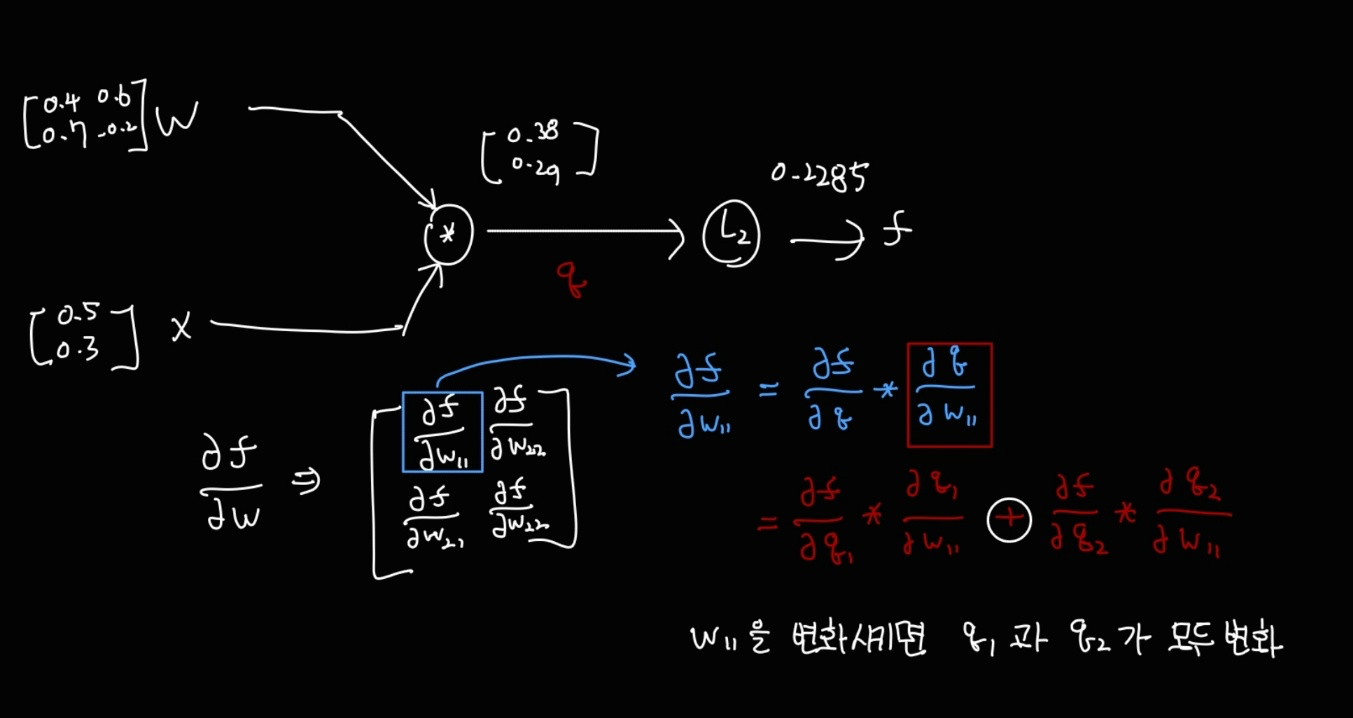 [0.4 0.6
0.7 -0.2] W
[0.38
0.29]
0.2285
* L₂ f
q
[0.5
0.3] x
∂f/∂w ⇒ [∂f/∂w₁₁ ∂f/∂w₂₂
∂f/∂w₂₁ ∂f/∂w₂₂]
∂f/∂w₁₁ = ∂f/∂q * ∂q/∂w₁₁
= ∂f/∂q₁ * ∂q₁/∂w₁₁ + ∂f/∂q₂ * ∂q₂/∂w₁₁
w₁₁을 변화시키면 q₁과 q₂가 모두 변화